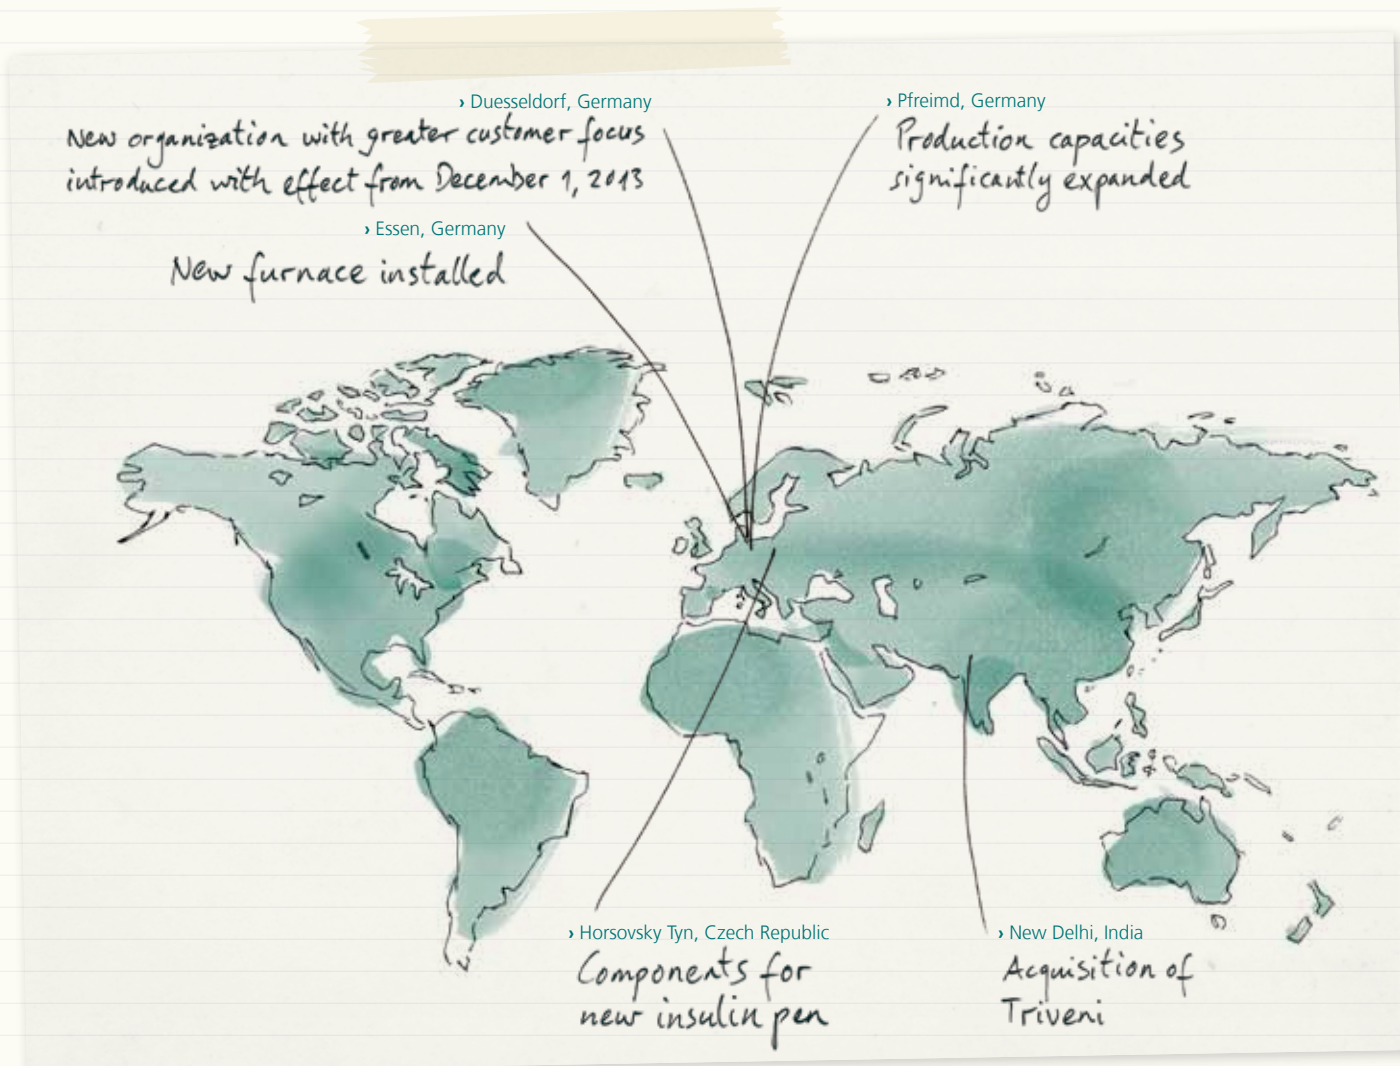 › Duesseldorf, Germany
New organization with greater customer focus
introduced with effect from December 1, 2013
› Pfreimd, Germany
Production capacities
significantly expanded
› Essen, Germany
New furnace installed
› Horsovsky Tyn, Czech Republic
Components for
new insulin pen
› New Delhi, India
Acquisition of
Triveni